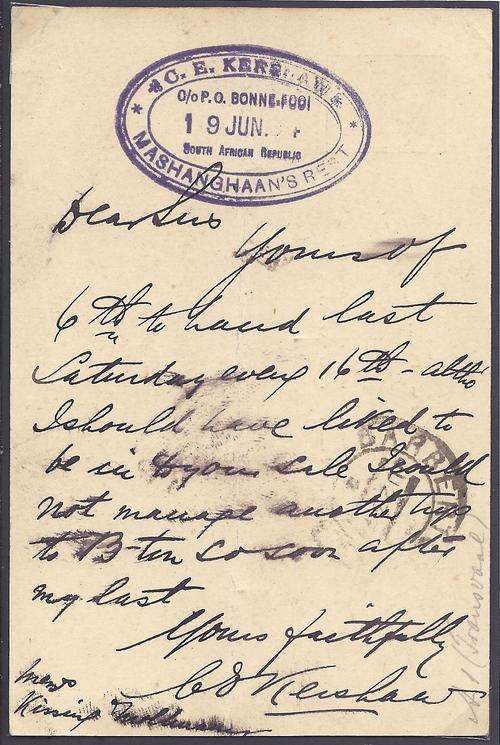 C. E. KERSHAW
C/o P. O. BONNE-FOOI
19 JUN.
SOUTH AFRICAN REPUBLIC
MASHANGHAAN'S REST
Dear Sirs
Yours of
6th to hand last
Saturday eveng 16th - altho
I should have liked to
be in to your sale I could
not manage another trip
to B-ton so soon after
my last
Yours faithfully
C E Kershaw
Messrs
BARBERTON
(Transvaal)